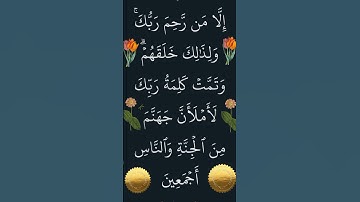 إِلَّا مَن رَّحِمَ رَبُّكَ ۚ
وَلِذَٰلِكَ خَلَقَهُمْ ۗ
وَتَمَّتْ كَلِمَةُ رَبِّكَ
لَأَمْلَأَنَّ جَهَنَّمَ
مِنَ ٱلْجِنَّةِ وَٱلنَّاسِ
أَجْمَعِينَ